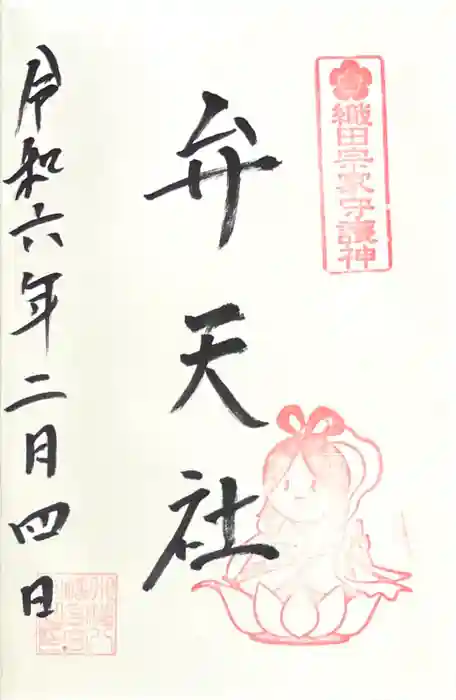 織田宗家守護神
弁天社
令和六年二月四日